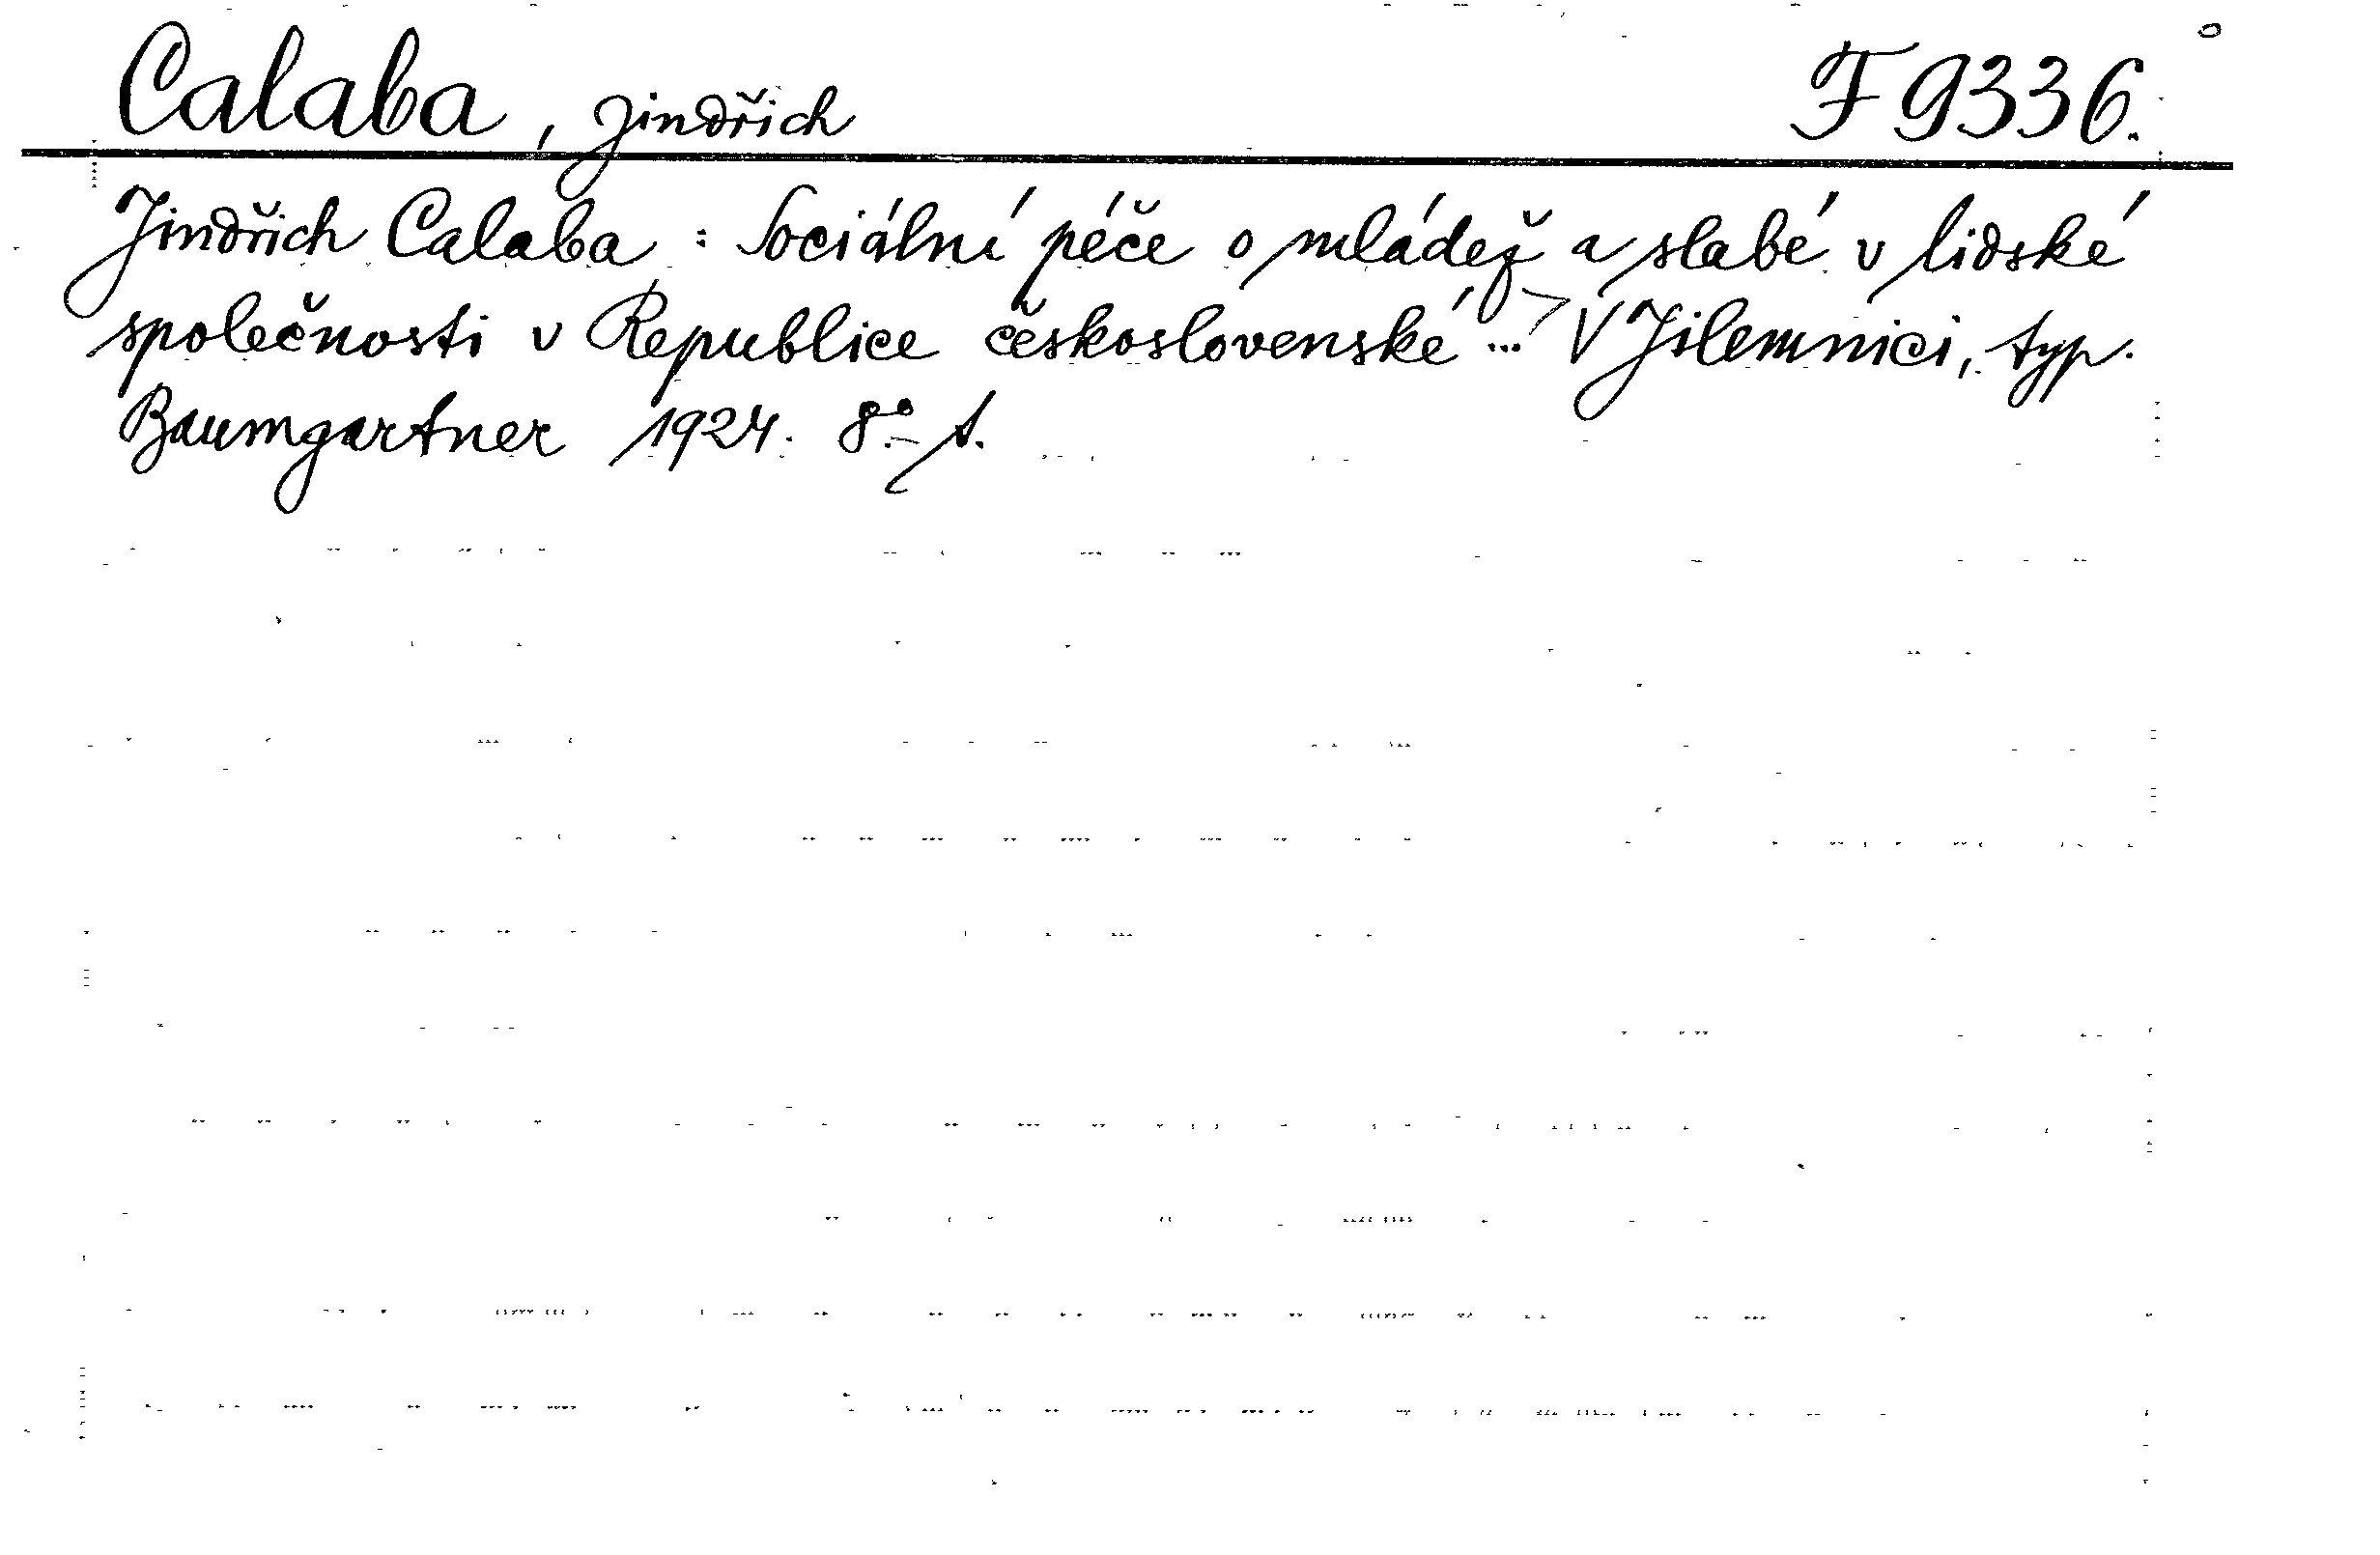 Calaba, Jindřich F 9336.
Jindřich Calaba : Sociální péče o mládež a slabé v lidské
společnosti v Republice československé ... V Jilemnici, typ.
Baumgartner 1924. 8°. - s.